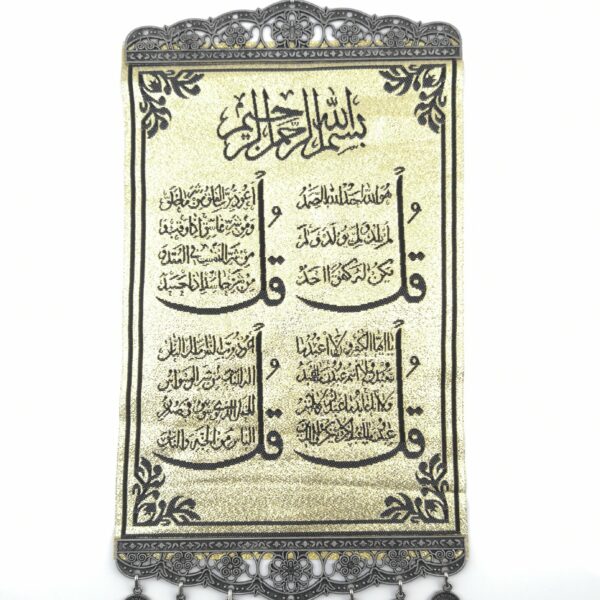 بسم الله الرحمن الرحيم
قل هو الله احد الله الصمد
لم يلد ولم يولد ولم
يكن له كفوا احد
قل اعوذ برب الفلق من شر ما خلق
ومن شر غاسق اذا وقب و
من شر النفثت في العقد و
من شر حاسد اذا حسد
قل يا ايها الكفرون لا اعبد ما
تعبدون ولا انتم عبدون ما اعبد
ولا انا عابد ما عبدتم ولا انتم
قل اعوذ برب الناس ملك الناس
اله الناس من شر الوسواس
الذي يوسوس في صدور
الناس من الجنة والناس